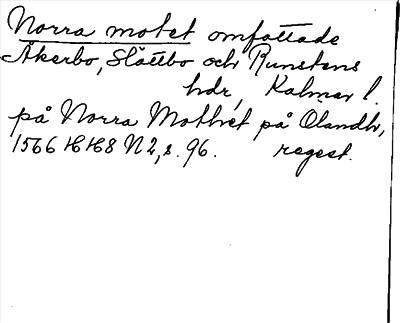 Norra motet omfattade
Åkerbo, Slättbo och Runstens
hdr, Kalmar l.
på Norra Mothet på Ølandh,
1566 HH8 N2, s. 96. regest.